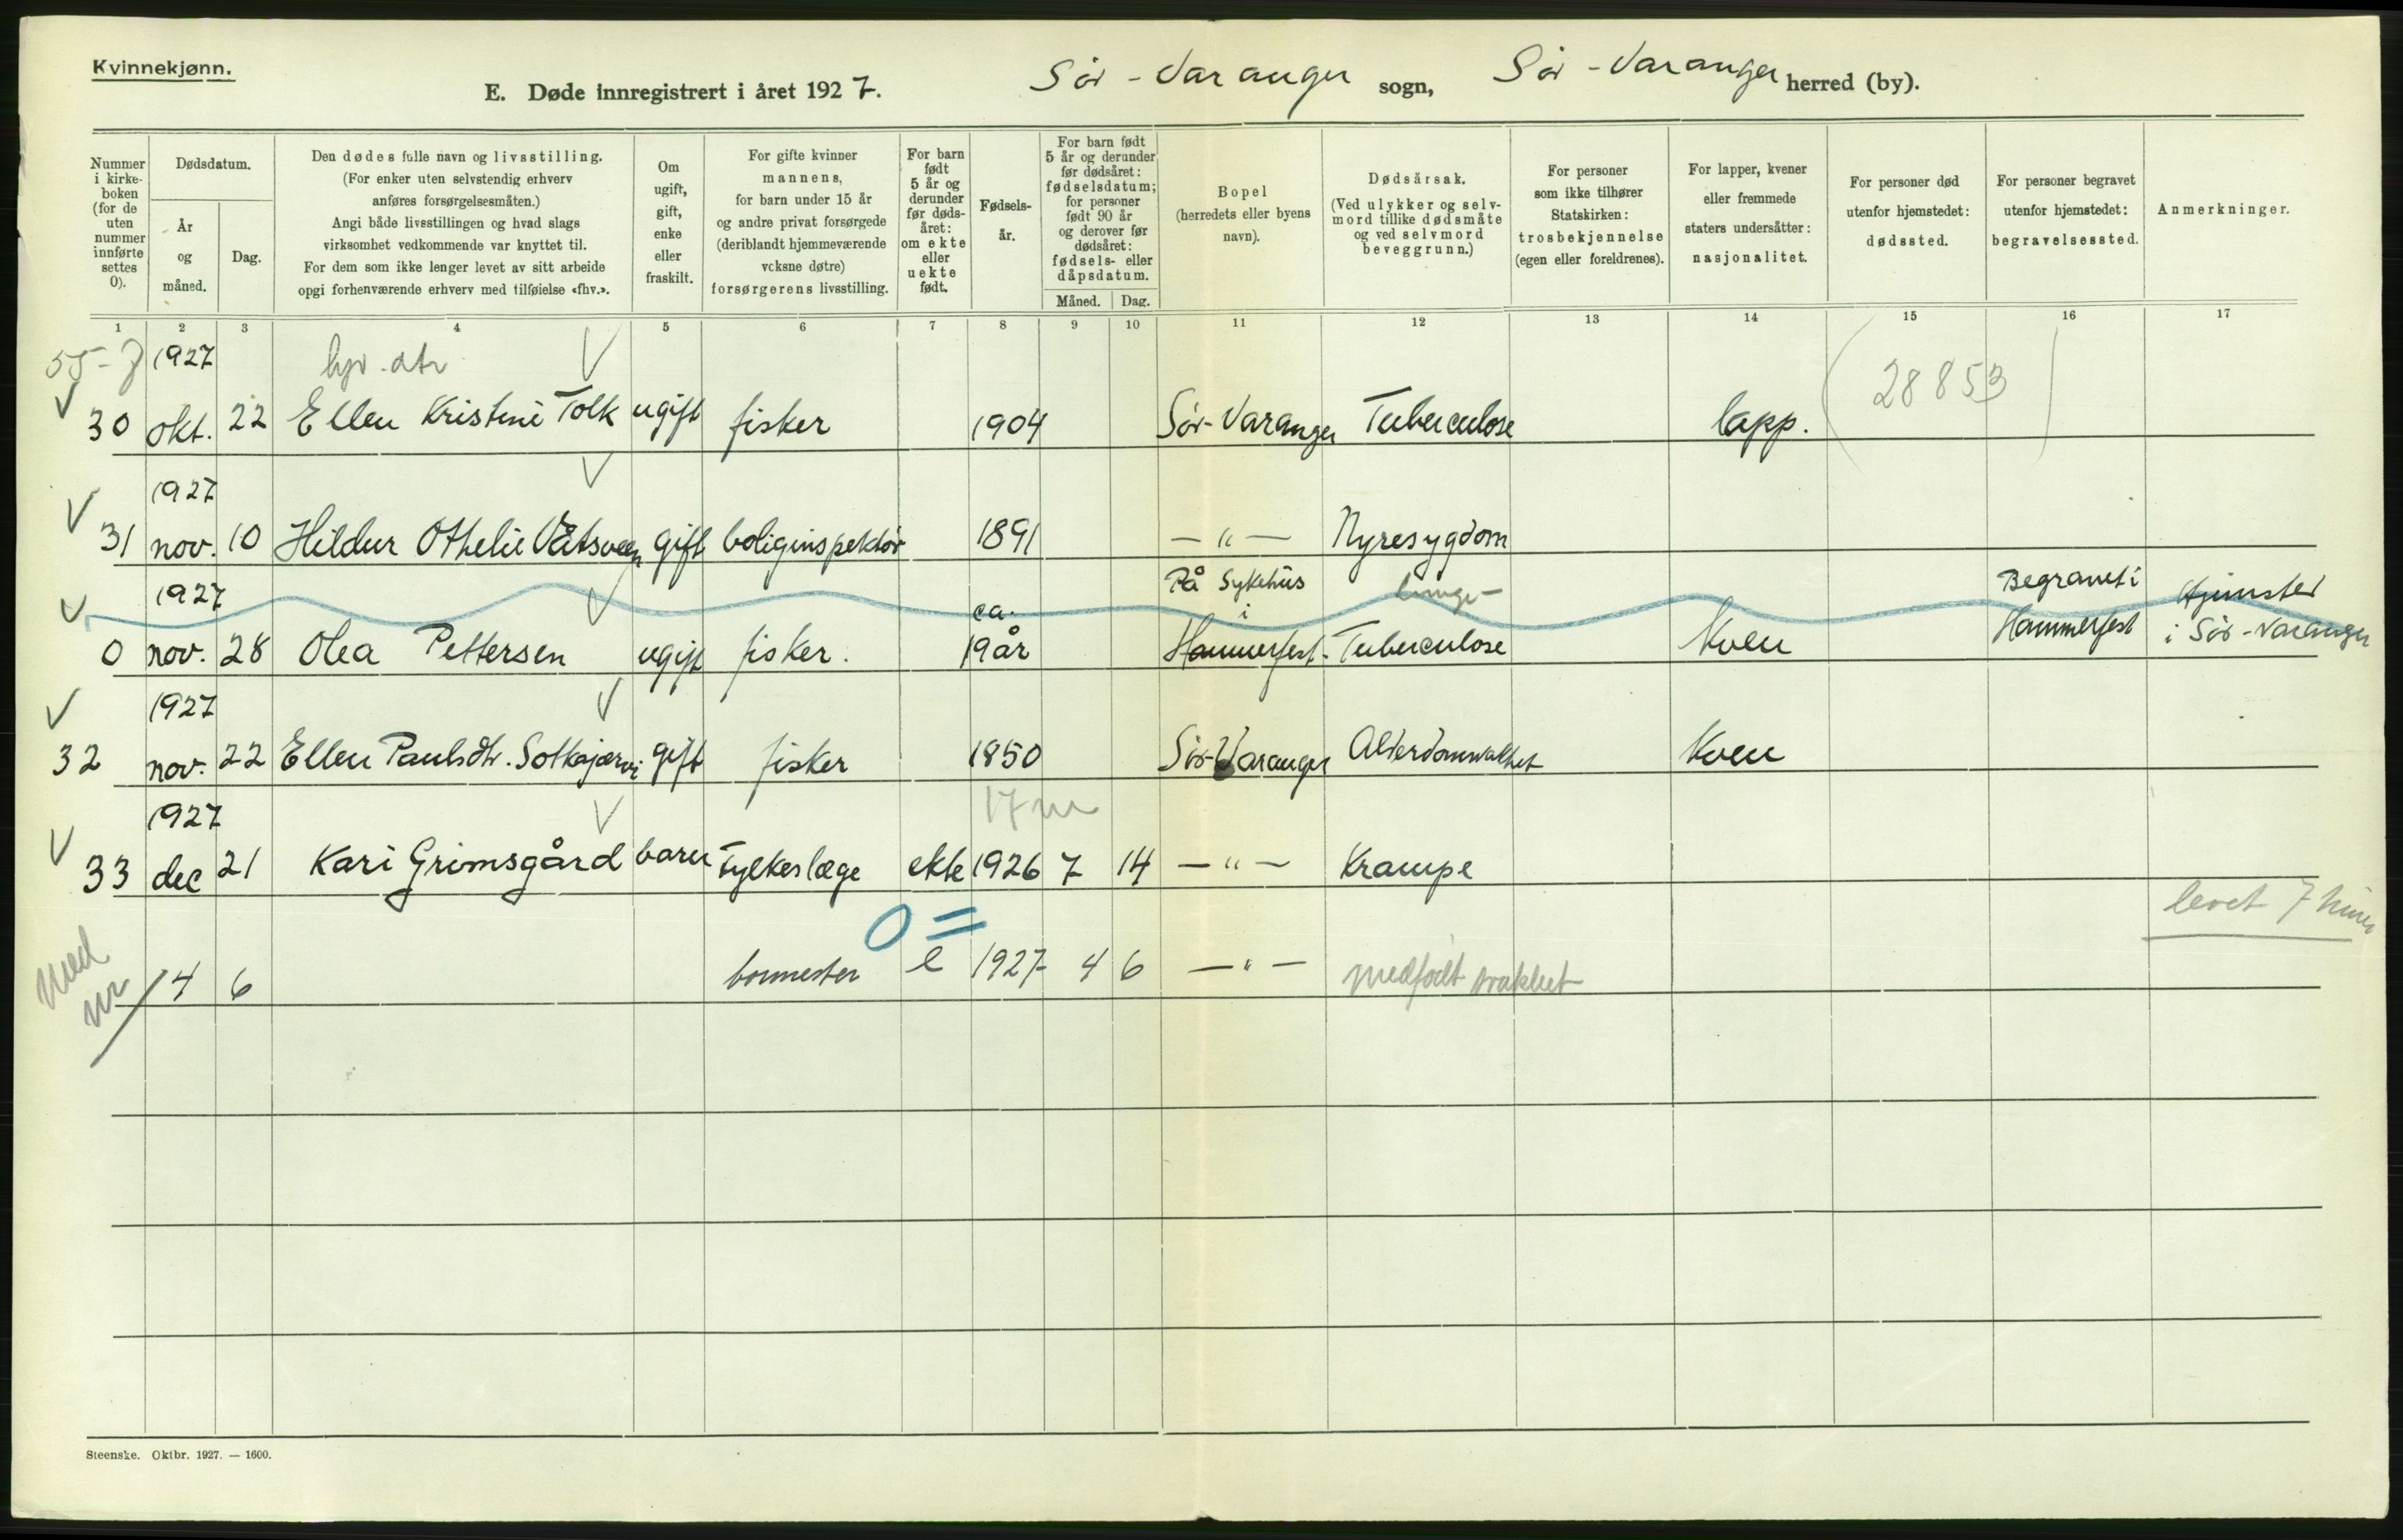 Kvinnekjønn.
E. Døde innregistrert i året 1927. Sør-Varanger sogn, Sør-Varanger herred (by).
Nummer i kirke-boken (for de uten nummer innførte settes 0).
Dødsdatum.
År og måned.
Dag.
Den dødes fulle navn og livsstilling.
(For enker uten selvstendig erhverv
anføres forsørgelsesmåten.)
Angi både livsstillingen og hvad slags
virksomhet vedkommende var knyttet til.
For dem som ikke lenger levet av sitt arbeide
opgi forhenværende erhverv med tilføielse «fhv.».
Om ugift, gift, enke eller fraskilt.
For gifte kvinner
mannens,
for barn under 15 år
og andre privat forsørgede
(deriblandt hjemmeværende
voksne døtre)
forsørgerens livsstilling.
For barn født 5 år og derunder før døds-året: om ekte eller uekte født.
Fødsels-år.
For barn født
5 år og derunder
før dødsåret:
fødselsdatum;
for personer
født 90 år
og derover før
dødsåret:
fødsels- eller
dåpsdatum.
Måned. Dag.
Bopel
(herredets eller byens
navn).
Dødsårsak.
(Ved ulykker og selv-
mord tillike dødsmåte
og ved selvmord
beveggrunn.)
For personer
som ikke tilhører
Statskirken:
trosbekjennelse
(egen eller foreldrenes).
For lapper, kvener
eller fremmede
staters undersåtter:
nasjonalitet.
For personer død
utenfor hjemstedet:
dødssted.
For personer begravet
utenfor hjemstedet:
begravelsessted.
Anmerkninger.
1 2 3 4 5 6 7 8 9 10 11 12 13 14 15 16 17
1927 (28853)
30 okt. 22 Ellen Kristine Tolk ugift fisker 1904 Sør-Varanger Tuberculose lapp.
1927
31 nov. 10 Hildur Othelie gift boliginspektør 1891 — " — Nyresygdom
1927 ca. På Sykehus i lunge- Begravet i Hjemsted
0 nov. 28 Olea Pettersen ugift fisker. 19 år Hammerfest. Tuberculose Kven Hammerfest i Sør-Varanger
1927
32 nov. 22 Ellen Paulsdtr. Sotkajærvi gift fisker 1850 Sør-Varanger Alderdomsvakhet Kven
1927 17 m
33 dec 21 Kari Grimsgård barn Fylkeslæge ekte 1926 7 14 — " — Krampe
levet 7
4 6 e 1927 4 6 — " — medfødt svakhet
Steenske. Oktbr. 1927. — 1600.